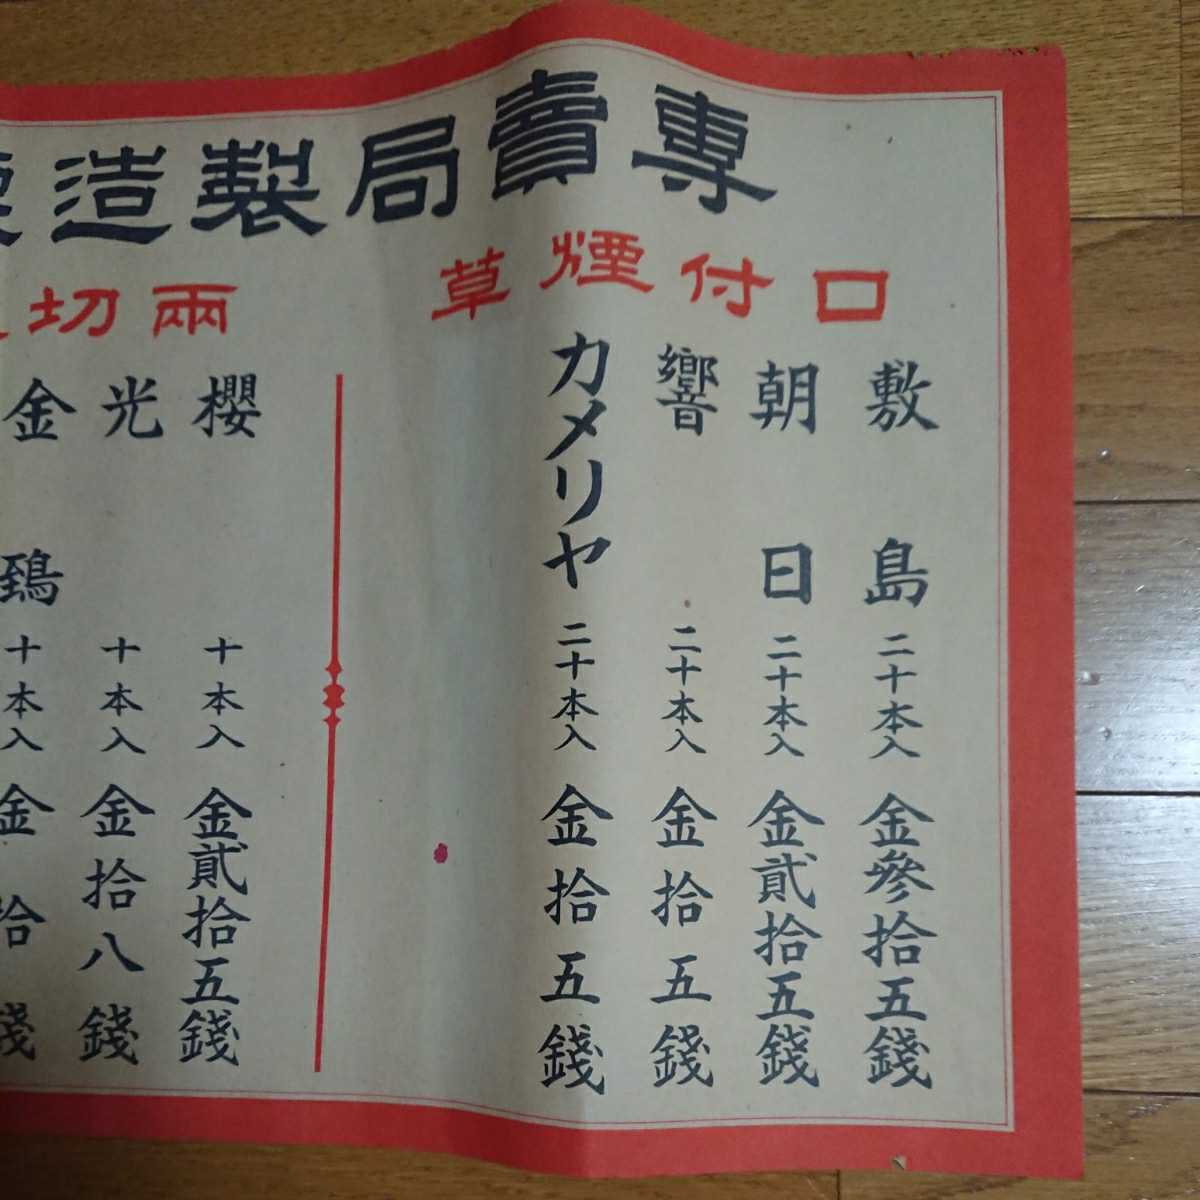 專賣局製造
口付煙草
敷島 二十本入 金參拾五錢
朝日 二十本入 金貳拾五錢
響 二十本入 金拾五錢
カメリヤ 二十本入 金拾五錢
兩切
櫻 十本入 金貳拾五錢
光 十本入 金拾八錢
金鵄 十本入 金拾錢